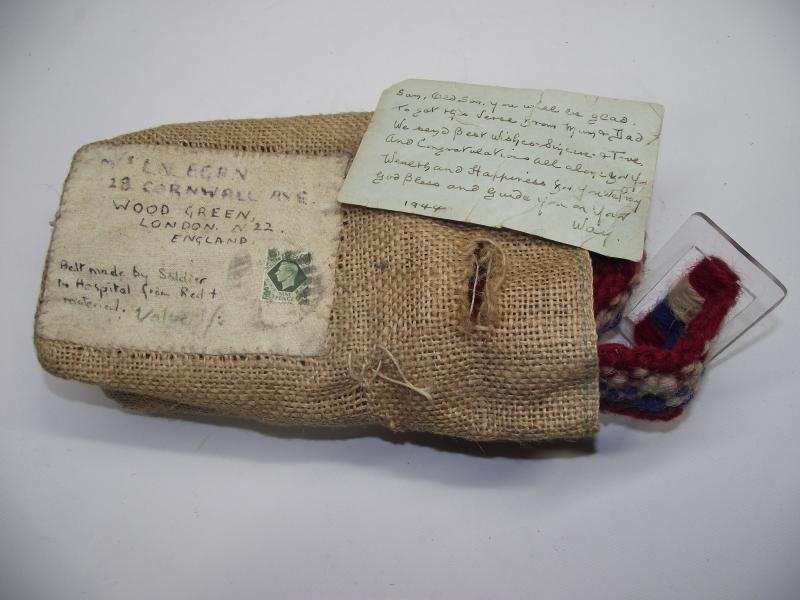 Mrs L.V. EGAN
28 CORNWALL AVE.
WOOD GREEN,
LONDON. N 22.
ENGLAND.
Belt made by Soldier
in Hospital from Red +
material. Value 1/-
NINE PENCE
Sam, Old Son. you will be glad.
To get this Verse from Mum & Dad
We send Best Wishes Sincere & True
And Congratulations all along for you
Wealth and Happiness
God Bless and Guide you on Your
Way.
1944